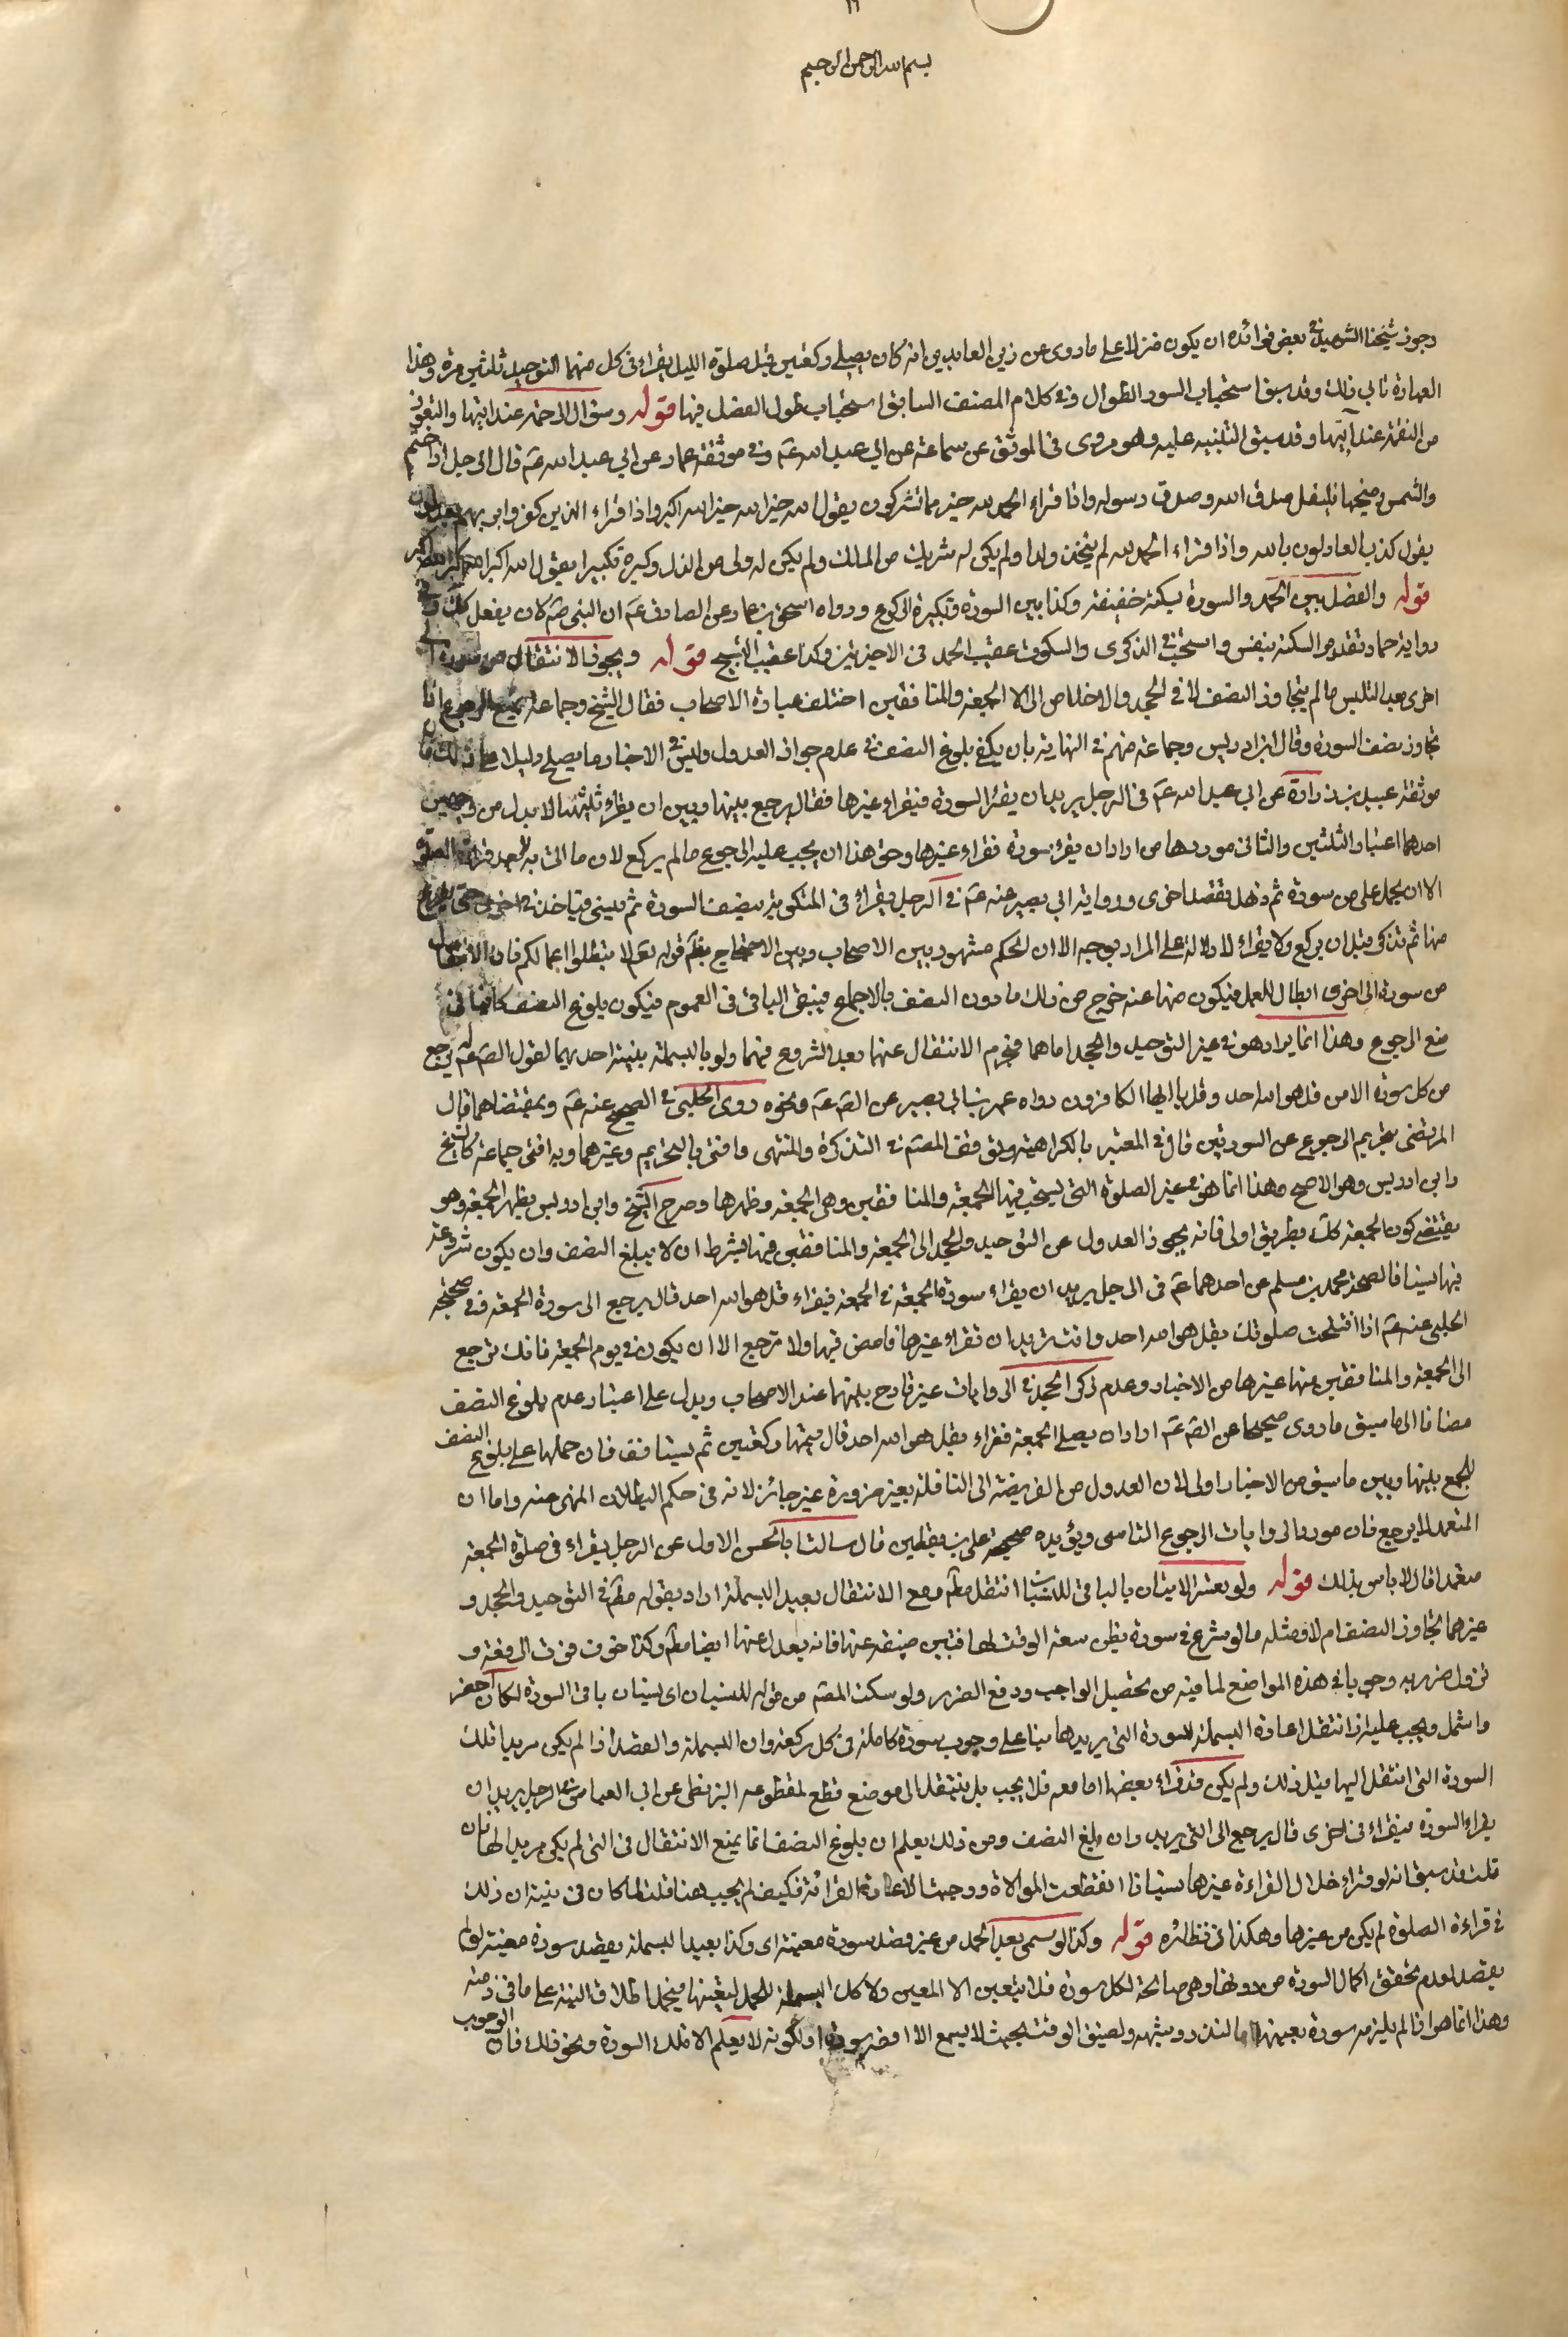 بسم الله الرحمن الرحيم
وجوز شيخنا الشهيد في بعض فوائده ان يكون منزلا على ما روى عن زين العابدين انه كان يصلي ركعتين قبل صلوة الليل يقراء في كل منهما التوحيد ثلثين مرة وهذا
العبارة تابى ذلك وقد سبق استحباب السور الطوال وفي كلام المصنف السابق استحباب طول الفضل فيها قوله وسؤال الرحمة عند ايتها والتعوذ
من النقمة عند آيتها وقد سبق التنبيه عليه وهو مروى في الموثق عن سماعة عن ابي عبد الله عم وفي موثقة عمار عن ابي عبد الله عم قال الرجل اذا ختم
والشمس وضحها فليقل صدق الله وصدق رسوله واذا قراء الحمد لله خير ما تشركون يقول الله خير الله خير الله اكبر واذا قراء الذين كفروا بربهم يعدلون
يقول كذب العادلون بالله واذا قراء الحمد لله لم يتخذ ولدا ولم يكن له شريك من الملك ولم يكن له ولى من الذل وكبره تكبيرا يقول الله اكبر الله اكبر الله اكبر
قوله والفضل بين الحمد والسورة بسكتة خفيفة وكذا بين السورة وتكبيرة الركوع ورواه اسحق بن عمار عن الصادق عم ان النبي صم كان يفعل كك وفي
رواية حماد تقدير السكتة بنفس واستحب في الذكرى والسكوت عقيب الحمد في الاخيرتين وكذا عقيب التسبيح قوله ويجوز الانتقال من سورة الى
اخرى بعد التلبس ما لم يتجاوز النصف الا في الجحد والاخلاص الا الى الجمعة والمنافقين اختلف عبارة الاصحاب فقال الشيخ وجماعة يمتنع الرجوع اذا
تجاوز نصف السورة وقال ابن ادريس وجماعة منهم في النهاية بان يكفي بلوغ النصف في عدم جواز العدول وليس في الاخبار ما يصلح دليلا على ذلك فان
موثقة عبيد بن زرارة عن ابي عبد الله عم في الرجل يريد ان يقرا السورة فيقراء غيرها فقال يرجع بينها وبين ان يقراء ثلثيها لا يدل من وجهين
احدهما اعتبار الثلثين والثاني موردها من اراد ان يقرء سورة فقراء غيرها وحق هذا ان يجب عليه الرجوع ما لم يركع لان ما اتى به لم يعد قرائة الصلوة
الا ان يحمل على من سورة ثم ذهل فقصد اخرى ورواية ابي بصير عنه عم في الرجل يقراء في المكتوبة بنصف السورة ثم ينسى فياخذ في اخرى حتى يفرغ
منها ثم يتذكر قبل ان يركع ولا يقراء لا دلالة على المراد بوجه الا ان الحكم مشهور بين الاصحاب وبين الاحتجاج بظم قوله تعم لا تبطلوا اعمالكم فان الانتقال
من سورة الى اخرى ابطال للعمل فيكون منهيا عنه خرج من ذلك ما دون النصف بالاجماع فيبقى الباقي في العموم فيكون بلوغ النصف كافيا في
منع الرجوع وهذا انما يراد هو في غير التوحيد والجحد اما هما فيحرم الانتقال عنهما بعد الشروع فيهما ولو بالبسملة بنية احديهما لقول الصم عم له يرجع
من كل سورة الا من قل هو الله احد وقل يا ايها الكافرون رواه عمر بن ابي بصير عن الصم عم ونحوه روى الحلبي في الصحيح عنه عم وبمقتضاهما قال
المرتضى بتحريم الرجوع عن السورتين قال في المعتبر بالكراهة وتوقف المصم في التذكرة والمنتهى وافتى بالتحريم وغيرهما وبه افتى جماعة كالشيخ
وابن ادريس وهو الاصح وهذا انما هو في غير الصلوة التي يستحب فيها الجمعة والمنافقين وهي الجمعة وظهرها وصرح الشيخ وابن ادريس بظهر الجمعة وهو
يقتضي كون الجمعة كك بطريق اولى فانه يجوز العدول عن التوحيد والجحد الى الجمعة والمنافقين فيها بشرط ان لا يبلغ النصف وان يكون شروعه
فيها نسيانا لصحة محمد بن مسلم عن احدهما عم في الرجل يريد ان يقراء سورة الجمعة في الجمعة فيقراء قل هو الله احد قال يرجع الى سورة الجمعة وفي صحيحة
الحلبي عنه عم اذا افتتحت صلوتك بقل هو الله احد وانت تريد ان تقراء غيرها فامض فيها ولا ترجع الا ان يكون في يوم الجمعة فانك ترجع
الى الجمعة والمنافقين منها غيرها من الاخبار وعدم ذكر الجحد في الروايات غير قادح بينهما عند الاصحاب ويدل على اعتبار عدم بلوغ النصف
مضافا الى ما سبق ما روى صحيحا عن الصم عم اراد ان يصلى الجمعة فقراء بقل هو الله احد قال يتمها ركعتين ثم يستانف فان حملها على بلوغ النصف
للجمع بينها وبين ما سبق من الاخبار اولى لان العدول من الفريضة الى النافلة بغير ضرورة غير جائز لانه في حكم البطلان المنهى عنه واما ان
المتعمد لا يرجع فان مورد الروايات الرجوع الناسى ويؤيده صحيحة على بن يقطين قال سالت ابا الحسن الاول عن الرجل يقراء في صلوة الجمعة
متعمدا قال لا باس بذلك قوله ولو تعسر الاتيان بالباقي للنسيان انتقل مطم ومع الانتقال يعيد البسملة اراد بقوله مطم في التوحيد والجحد و
غيرهما تجاوز النصف ام لا ومثله ما لو شرع في سورة يظن سعة الوقت لها فتبين ضيقه عنها فانه يعدل عنها ايضا مطم وكذا خوف فوت الرفقة و
نزول ضرر به وجوبا في هذه المواضع لما فيه من تحصيل الواجب ودفع الضرر ولو سكت المصم من قوله للنسيان اى لنسيان باقي السورة لكان اخصر
واشمل ويجب عليه اذا انتقل اعادة البسملة للسورة التي يريدها بناء على وجوب سورة كاملة في كل ركعة وان البسملة والقصد اذا لم يكن مريدا تلك
السورة التي انتقل اليها قبل ذلك ولم يكن قد قراء بعضها اما معه فلا يجب بل ينتقل الى موضع قطع لمقطوعه البزنطي عن ابي العباس في الرجل يريد ان
يقراء السورة فيقراء في اخرى قال يرجع الى التي يريد وان بلغ النصف ومن ذلك يعلم ان بلوغ النصف انما يمنع الانتقال في التي لم يكن مريدا لها فان
قلت قد سبق انه لو قراء خلال القراءة غيرها نسيانا انقطعت الموالاة ووجبت الاعادة القرائة فكيف لم يجب هنا قلت لما كان في نيته ان ذلك
في قراءة الصلوة لم يكن من غيرها وهكذا في نظائره قوله وكذا لو سمى بعد الحمد من غير قصد سورة معينة اى وكذا يعيد البسملة بقصد سورة معينة لو لم
يقصد لعدم تحقق اكمال السورة من دونها وهي صالحة لكل سورة فلا يتعين الا المعين ولا كك البسملة للحمد لتعينها فيحمل اطلاق النية على ما في ذمته
وهذا انما هو اذا لم يلزمه سورة بعينها اما لنذر وشبهه ولضيق الوقت بحيث لا يسع الا اقصر سورة او لكونه لا يعلم الا تلك السورة ونحو ذلك فان الوجوب